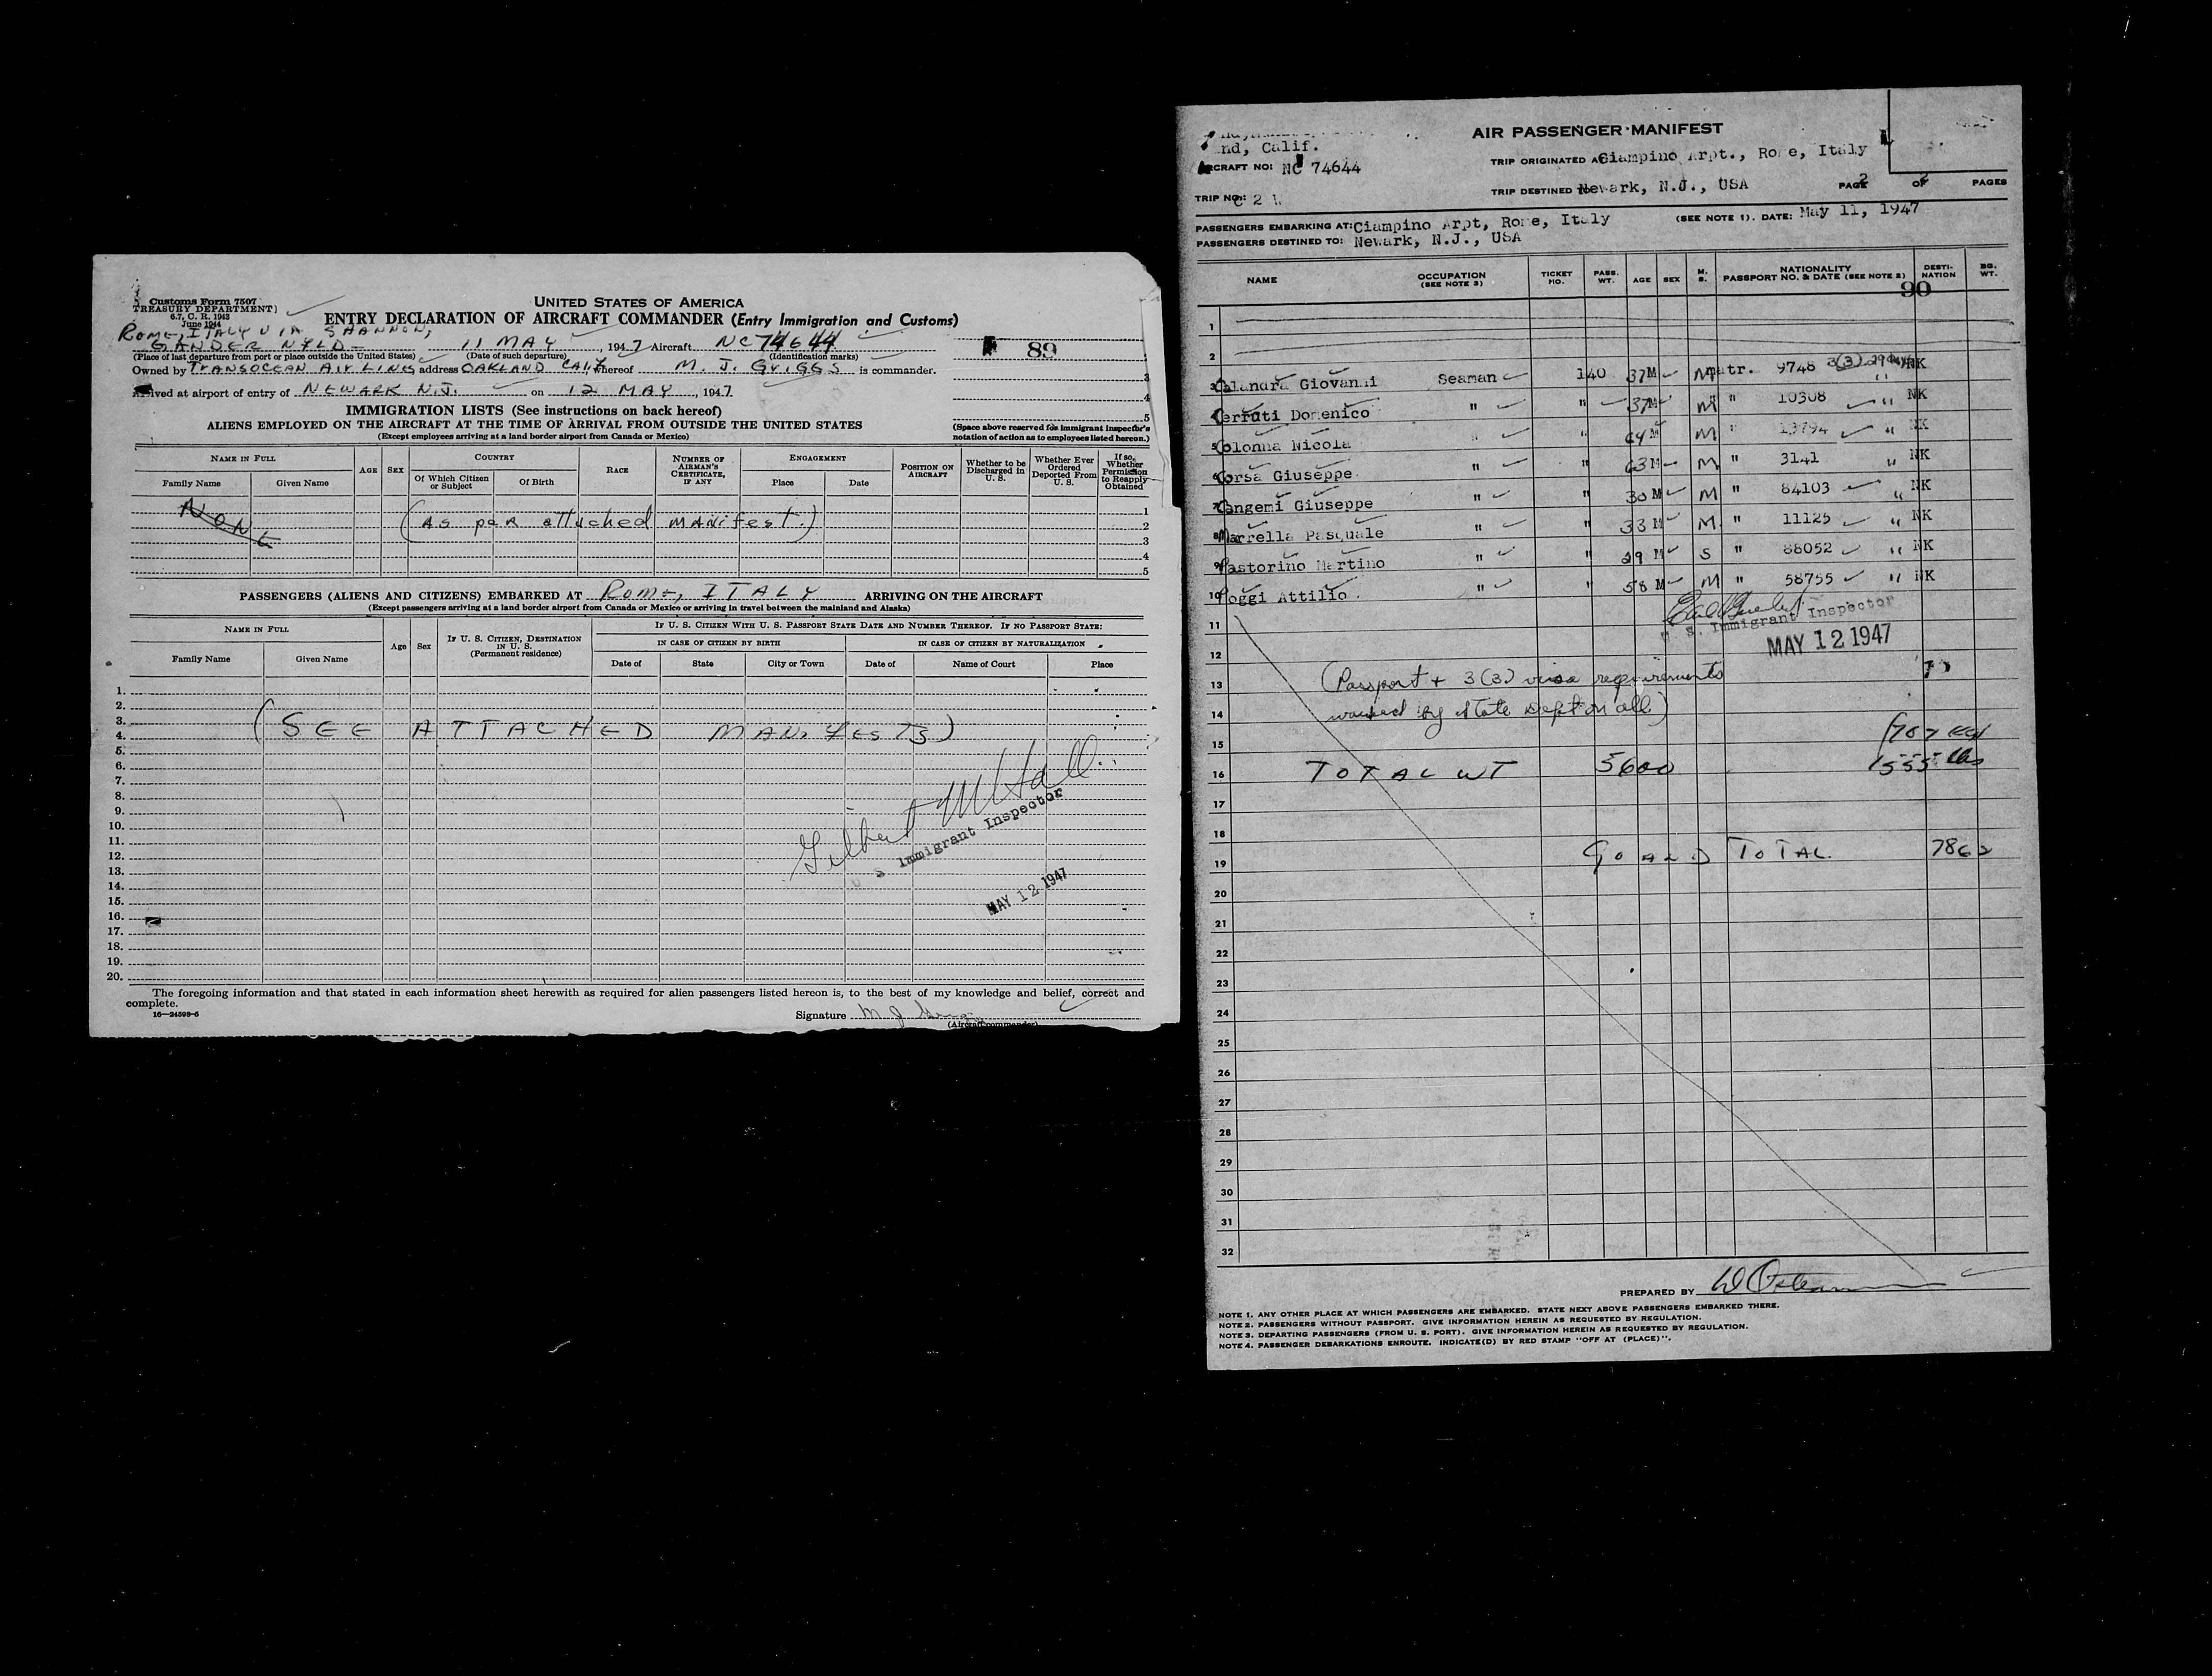 Customs Form 7507
TREASURY DEPARTMENT
6.7, C. R. 1943
June 1944
UNITED STATES OF AMERICA
ENTRY DECLARATION OF AIRCRAFT COMMANDER (Entry Immigration and Customs)
ROME, ITALY VIA SHANNON,
GANDER NFLD - 11 MAY, 1947 Aircraft NC74644
(Place of last departure from port or place outside the United States) (Date of such departure) (Identification marks)
89
Owned by TRANSOCEAN AIR LINES address OAKLAND CALIF thereof M. J. GRIGGS is commander.
Arrived at airport of entry of NEWARK N.J. on 12 MAY, 1947
IMMIGRATION LISTS (See instructions on back hereof)
ALIENS EMPLOYED ON THE AIRCRAFT AT THE TIME OF ARRIVAL FROM OUTSIDE THE UNITED STATES
(Except employees arriving at a land border airport from Canada or Mexico)
3
4
5
(Space above reserved for immigrant inspector's
notation of action as to employees listed hereon.)
NAME IN FULL
Family Name
Given Name
AGE
SEX
COUNTRY
Of Which Citizen or Subject
Of Birth
RACE
NUMBER OF AIRMAN'S CERTIFICATE, IF ANY
ENGAGEMENT
Place
Date
POSITION ON AIRCRAFT
Whether to be Discharged in U. S.
Whether Ever Ordered Deported From U. S.
If so, Whether Permission to Reapply Obtained
NONE
(As per attached manifest.)
1
2
3
4
5
PASSENGERS (ALIENS AND CITIZENS) EMBARKED AT Rome, ITALY ARRIVING ON THE AIRCRAFT
(Except passengers arriving at a land border airport from Canada or Mexico or arriving in travel between the mainland and Alaska)
NAME IN FULL
Family Name
Given Name
Age
Sex
IF U. S. CITIZEN, DESTINATION IN U. S. (Permanent residence)
IF U. S. CITIZEN WITH U. S. PASSPORT STATE DATE AND NUMBER THEREOF. IF NO PASSPORT STATE:
IN CASE OF CITIZEN BY BIRTH
IN CASE OF CITIZEN BY NATURALIZATION
Date of
State
City or Town
Date of
Name of Court
Place
1.
2.
3.
4.
(SEE ATTACHED MANIFESTS)
5.
6.
7.
8.
9.
10.
11.
12.
13.
14.
15.
16.
17.
18.
19.
20.
Gilbert M Hall
U S Immigrant Inspector
MAY 12 1947
The foregoing information and that stated in each information sheet herewith as required for alien passengers listed hereon is, to the best of my knowledge and belief, correct and
complete.
16—24598-5
Signature M J Griggs
(Aircraft commander)
AIR PASSENGER MANIFEST
nd, Calif.
AIRCRAFT NO: NC 74644
TRIP ORIGINATED AT Ciampino Arpt., Rome, Italy
TRIP DESTINED TO Newark, N.J., USA
PAGE 2 OF 2 PAGES
TRIP NO:
PASSENGERS EMBARKING AT: Ciampino Arpt, Rome, Italy (SEE NOTE 1). DATE: May 11, 1947
PASSENGERS DESTINED TO: Newark, N.J., USA
NAME
OCCUPATION (SEE NOTE 3)
TICKET NO.
PASS. WT.
AGE
SEX
M. S.
NATIONALITY PASSPORT NO. & DATE (SEE NOTE 2)
DESTINATION
BG. WT.
90
1
2
3 Calandra Giovanni Seaman 140 37 M M matr. 9748 3(3) NK
4 Cerruti Domenico " " 37 M M " 10308 " NK
5 Colonna Nicola " " 64 M M " 13794 " NK
6 Corsa Giuseppe " " 63 M M " 3141 " NK
7 Cangemi Giuseppe " " 30 M M " 84103 " NK
8 Marrella Pasquale " " 33 M M " 11125 " NK
9 Pastorino Martino " " 29 M S " 88052 " NK
10 Poggi Attilio " " 58 M M " 58755 " NK
U. S. Immigrant Inspector
MAY 12 1947
11
12
13 (Passport + 3(3) visa requirements
14 waived by State Dept on all)
15
16 TOTAL WT 5600 1555 lbs
17
18
19 GRAND TOTAL 7862
20
21
22
23
24
25
26
27
28
29
30
31
32
PREPARED BY
NOTE 1. ANY OTHER PLACE AT WHICH PASSENGERS ARE EMBARKED. STATE NEXT ABOVE PASSENGERS EMBARKED THERE.
NOTE 2. PASSENGERS WITHOUT PASSPORT. GIVE INFORMATION HEREIN AS REQUESTED BY REGULATION.
NOTE 3. DEPARTING PASSENGERS (FROM U. S. PORT). GIVE INFORMATION HEREIN AS REQUESTED BY REGULATION.
NOTE 4. PASSENGER DEBARKATIONS ENROUTE. INDICATE(D) BY RED STAMP "OFF AT (PLACE)".